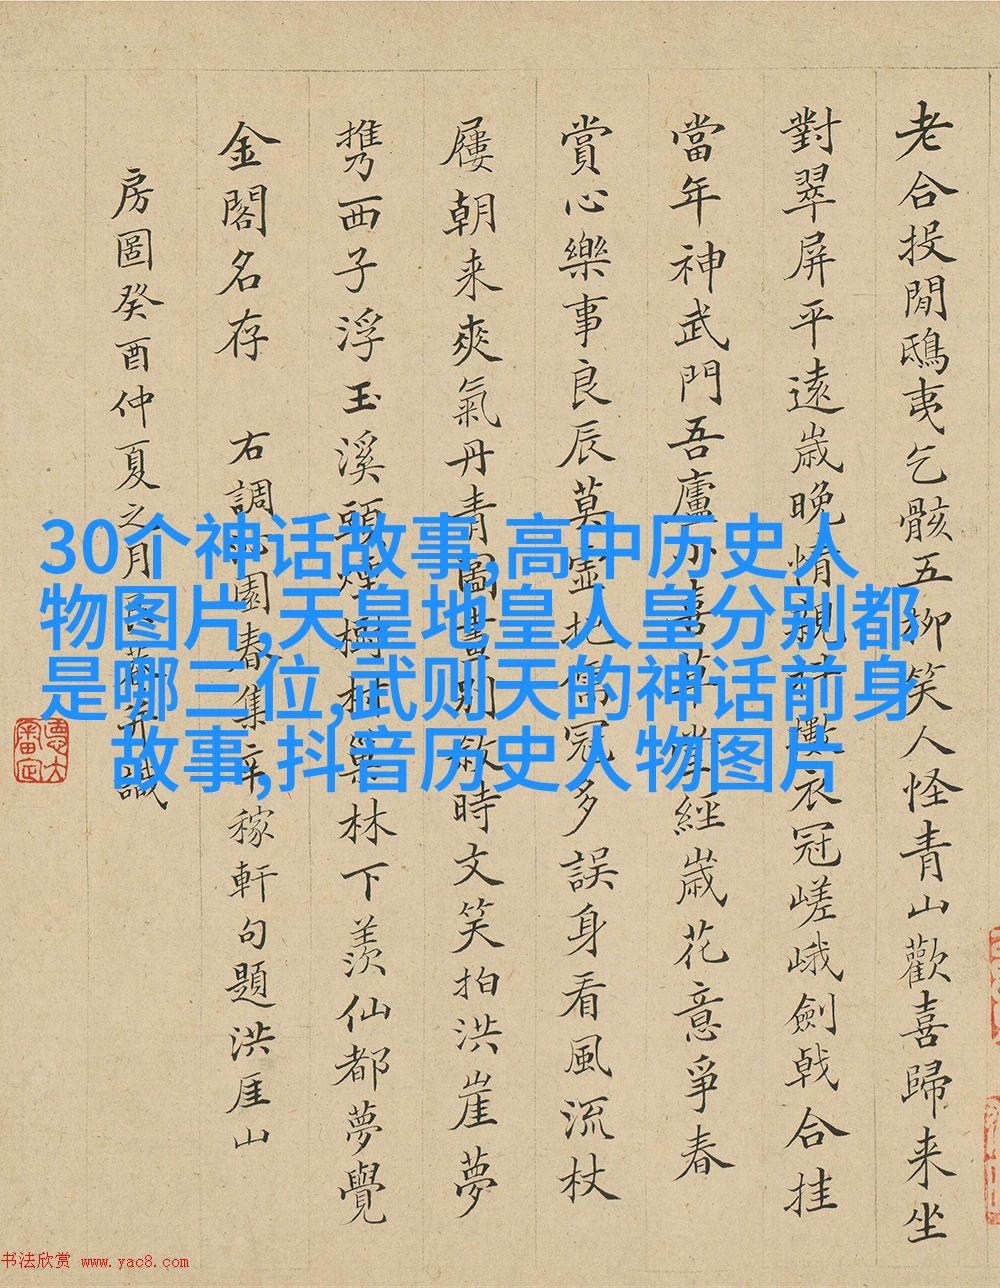 老合投閒鴟夷乞骸五柳笑人怪青山歡喜歸来坐
對翠屏平遠歳晚情親衣冠嵯峨劍戟合挂
當年神武門吾廬小喜草堂經歳花意爭春
賞心樂事良辰莫虛地儒冠多誤身看風流杖
屨朝来爽氣丹青圖畫別敘時文笑拍洪崖夢
携西子浮玉溪頭煙樹林下羨仙都夢覺
金閣名存 右調沁園春集辛稼軒句題洪厓山
房圖癸酉仲夏之月臣識
30个神话故事,高中历史人
物图片,天皇地皇人皇分别都
是哪三位,武则天的神话前身
故事,抖音历史人物图片
书法欣赏 www.yac8.com